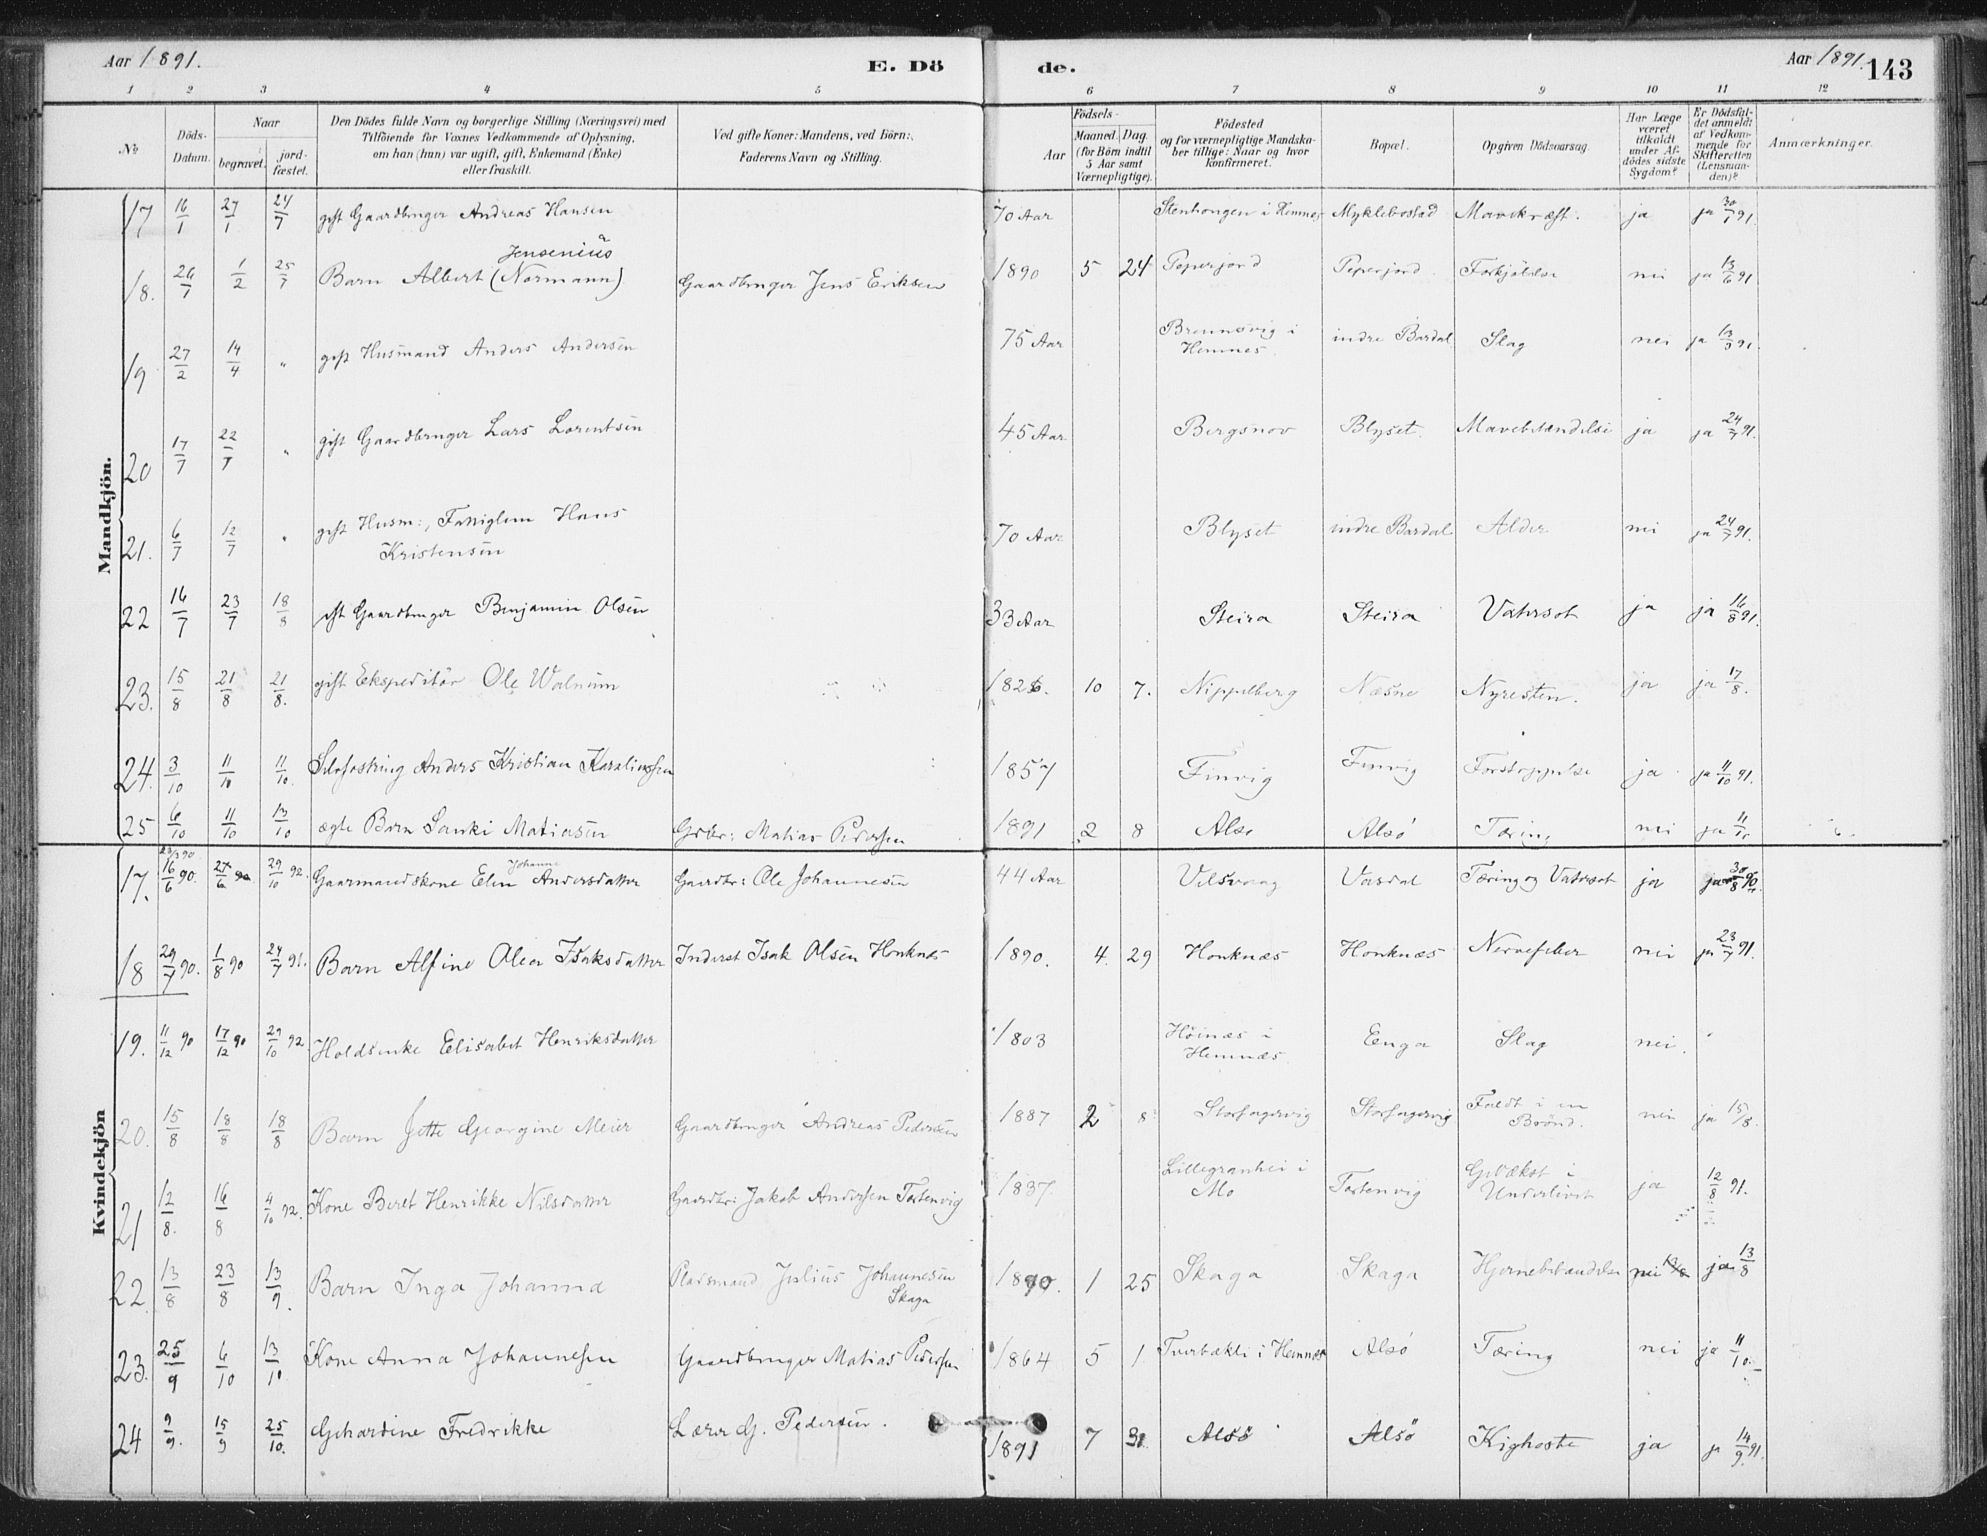 Aar 1891. E. Dö de. Aar 1891. 143
1 2 3 4 5 6 7 8 9 10 11 12
№ Döds-Datum. Naar begravet. jord-fæstet. Den Dödes fulde Navn og borgerlige Stilling (Næringsvei) med Tilföiende for Voxnes Vedkommende af Oplysning, om han (hun) var ugift, gift, Enkemand (Enke) eller fraskilt. Ved gifte Koner: Mandens, ved Börn: Faderens Navn og Stilling. Födsels- Aar Maaned. Dag. (for Börn indtil 5 Aar samt Værnepligtige). Födested og for værnepligtige Mandskaber tillige: Naar og hvor konfirmeret. Bopæl. Opgiven Dödsaarsag. Har Læge været tilkaldt under Afdödes sidste Sygdom? Er Dödsfaldet anmeldt af Vedkommende for Skifteretten (Lensmanden)? Anmærkninger.
Mandkjön.
17 16/1 27/1 24/7 gift Gaardbruger Andreas Hansen 70 Aar Stenhongen i Hemnes Myklebostad Mavekræft. ja ja 30/1 91.
18. 26/7 1/2 25/7 Barn Albert (Normann) Jensenius Gaardbruger Jens Eriksen 1890 5 24 Peperjord Peperjord Forkjölelse nei ja 13/6 91
19 27/2 14/4 " gift Husmand Anders Andersen 75 Aar Brennesvig i Hemnes. indre Bardal Slag nei ja 13/3 91.
20 17/7 22/7 " gift Gaardbruger Lars Lorentsen 45 Aar Bergsnov Blyset. Mavebetændelse ja ja 24/7 91.
21. 6/7 12/7 " gift Husm:, Fattiglem Hans Kristensen 70 Aar Blyset indre Bardal Alder nei ja 24/7 91.
22 16/7 23/7 18/8 gift Gaardbruger Benjamin Olsen 33 Aar Steira Steira Vatersot ja ja 16/8 91.
23. 15/8 21/8 21/8. gift Ekspeditör Ole Walnum 1826. 10 7. Nippelberg Næsne Nyresten. ja ja 17/8.
24. 3/10 11/10 11/10. Selvfostring Anders Kristian Karoliussen 1857 Finvig Finvig Forstoppelse ja ja 11/10 91.
25 6/10 11/10 13/10 ægte Barn Sanki Matiasen Grbr: Matias Pedersen 1891 2 8 Alsö Alsö Tæring nei ja 11/10
Kvindekjön
17. 16/6 90. 27/6 90 29/10 92. Gaarmandskone Elen Johanne Andersdatter Gaardbr: Ole Johannesen 44 Aar Vilsvaag Vasdal Tæring og Vatersot ja ja 30/8 90.
18 29/7 90. 1/8 90 24/7 91. Barn Alfine Olea Isaksdatter Inderst Isak Olsen Honknes 1890. 4. 29 Honknæs Honknæs Nervefeber nei ja 23/7 91.
19. 11/12 90 17/12 90 29/10 92 Holdsenke Elisabet Henriksdatter 1803 Höinæs i Hemnæs. Enga Slag nei.
20. 15/8 18/8 18/8 Barn Jette Georgine Meier Gaardbruger Andreas Pedersen 1887 2 8 Storfagervig Storfagervig Faldt i en Brönd. nei ja 15/8.
21 12/8. 16/8 4/10 92. Kone Beret Henrikke Nilsdatter Gaardbr: Jakob Andersen Tortenvig 1837. Lillegranhei i Mo Tortenvig Gevækst i Underlivet ja 12/8 91.
22. 13/8 23/8 13/9. Barn Inga Johanna Pladsmand Julius Johannesen Skaga 1890. 1 25 Skaga Skaga Hjernebetændelse nei ja 13/8
23. 25/9 6/10 13/10 Kone Anna Johannesen Gaardbruger Matias Pedersen 1864 5 1 Tverbækli i Hemnæs Alsö Tæring nei ja 11/10.
24 9/9. 15/9 25/10. Gehardine Fredrikke Lærer G. Pedersen. 1891 7 31. Alsö Alsö Kighoste ja ja 14/9. 91